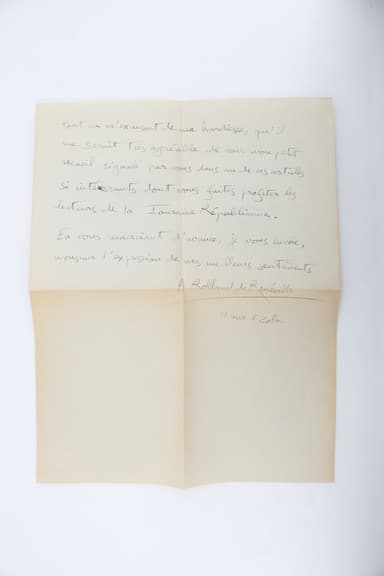 tout en m'excusant de ma hardiesse, qu'il
me serait très agréable de voir mon petit
recueil signalé par vous dans un de ces articles
si intéressants dont vous faites profiter les
lecteurs de la Touraine Républicaine.
En vous remerciant d'avance, je vous envoie,
monsieur l'expression de mes meilleurs sentiments
A Rolland de Renéville
11 rue